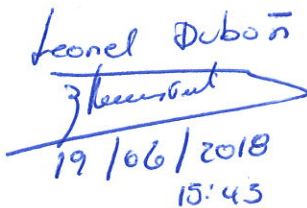 Leonel Dubon
19/06/2018
15:45